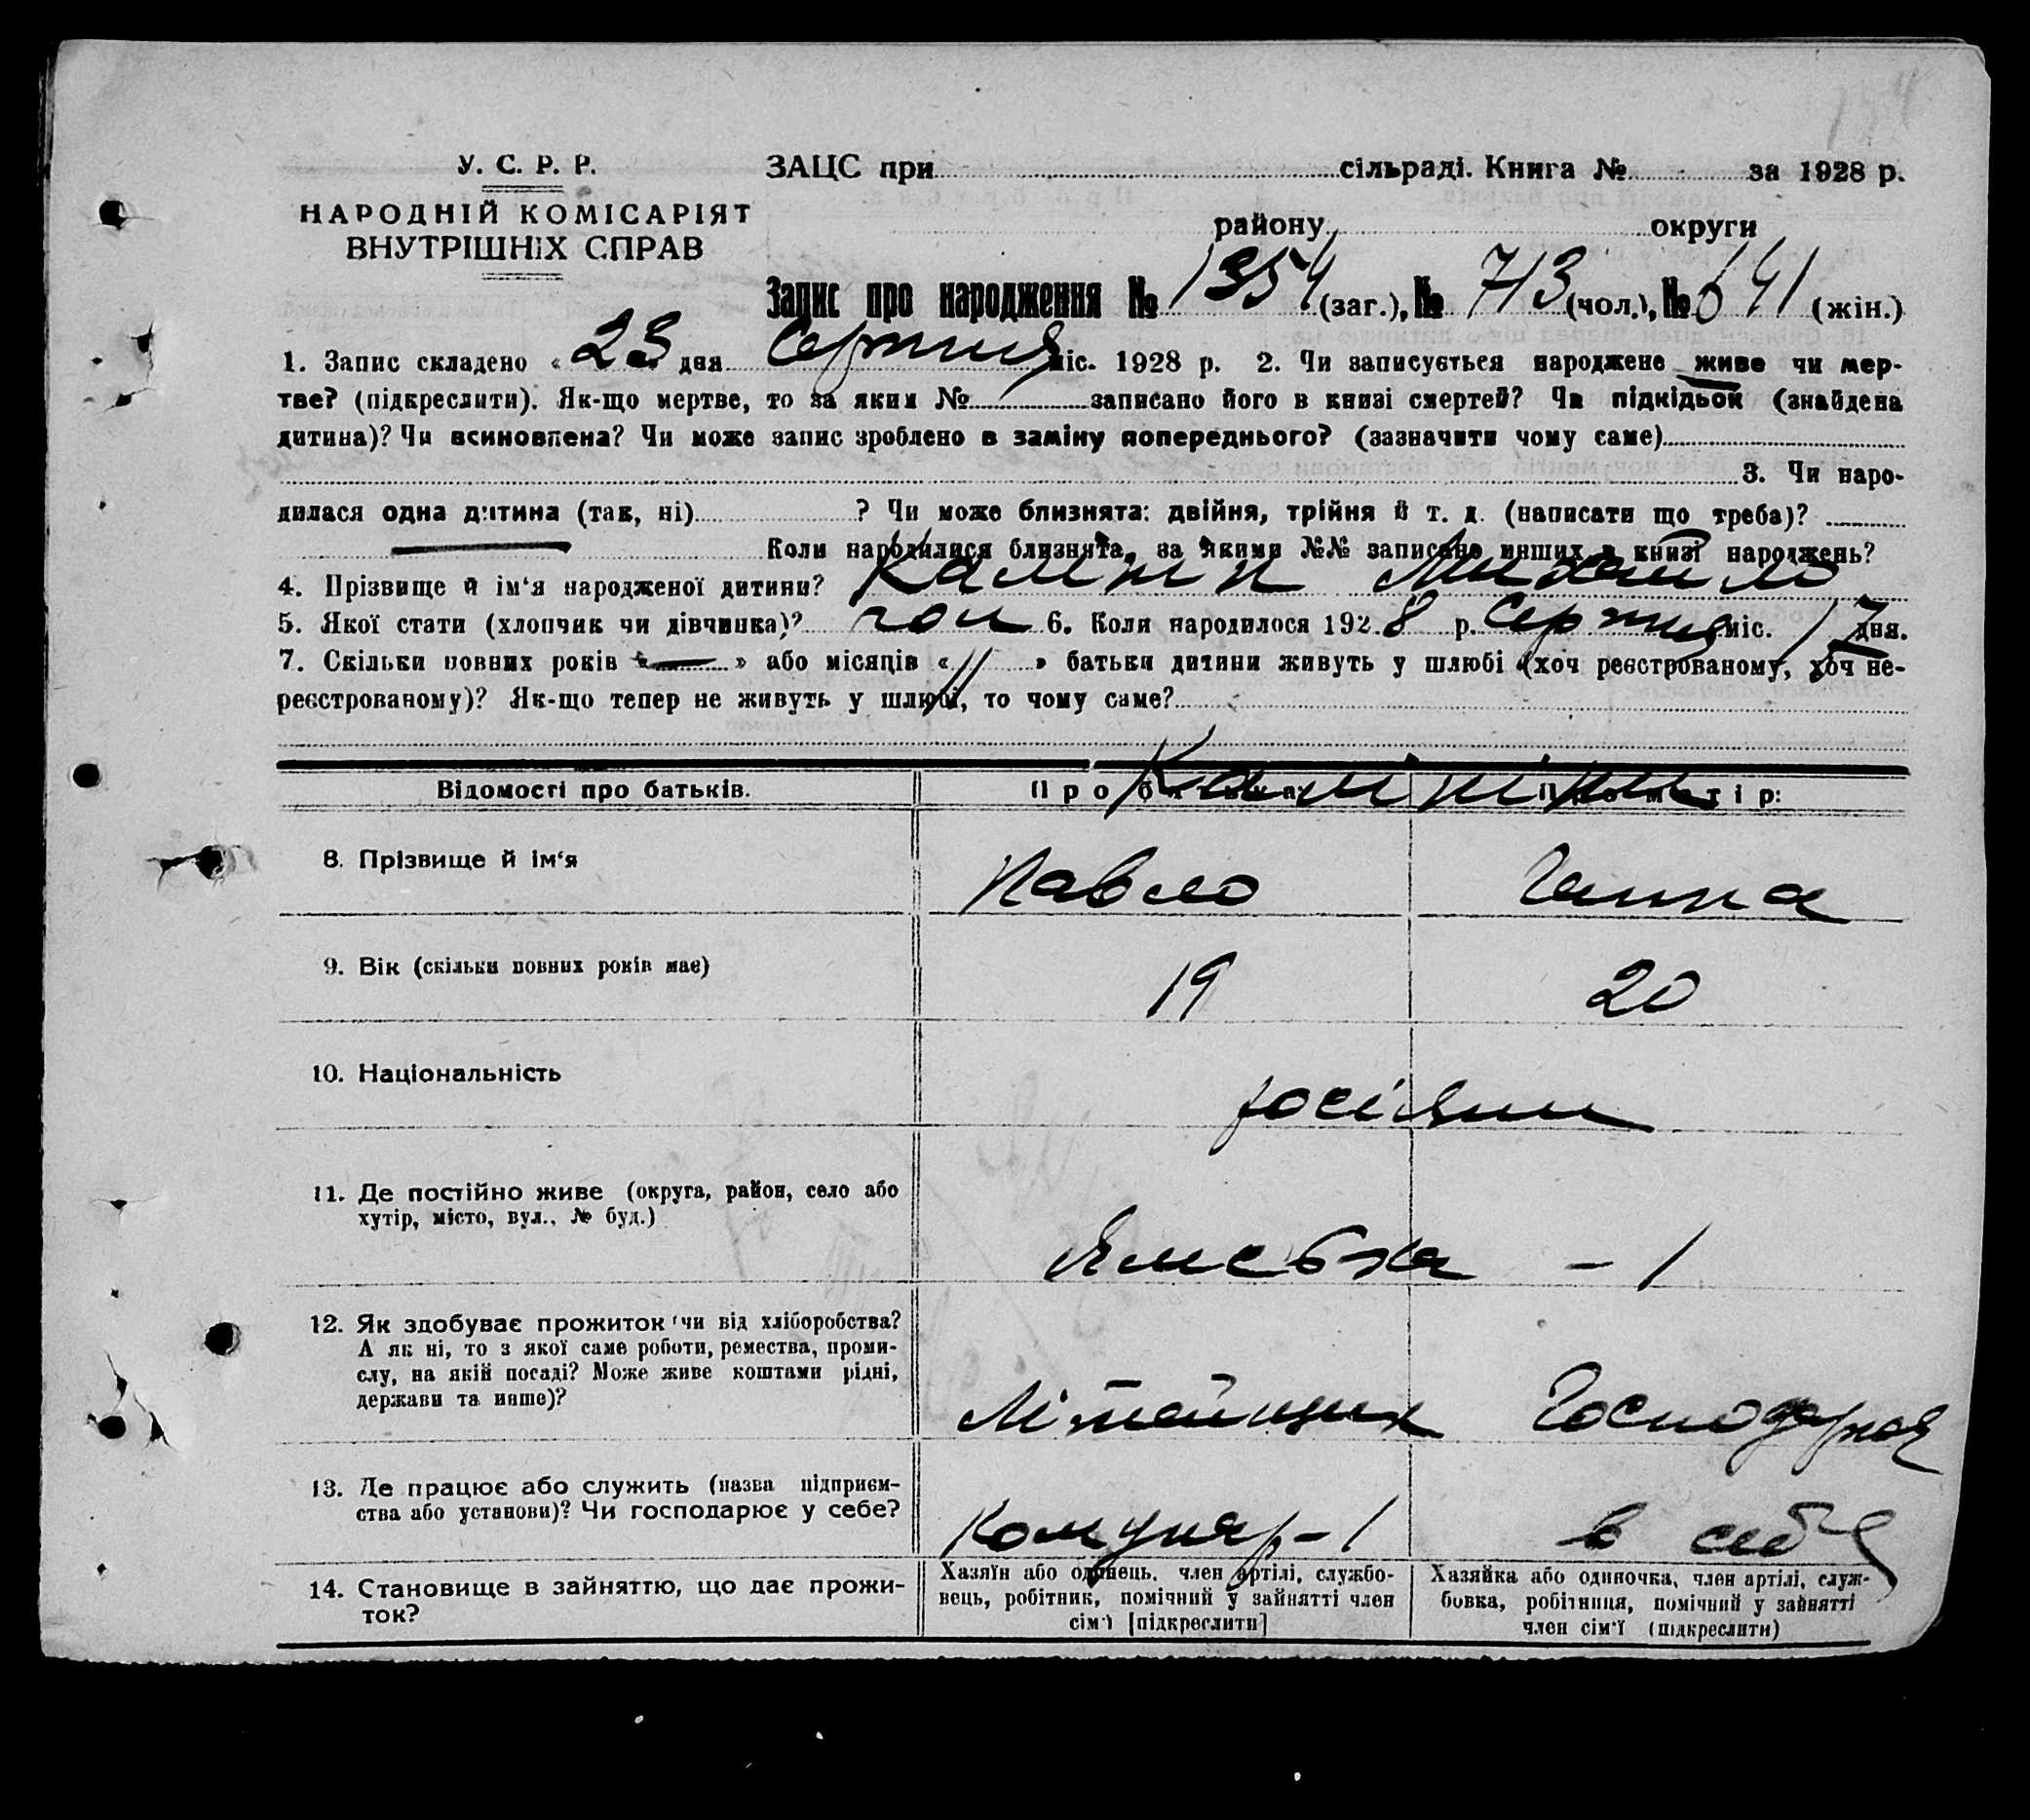 У. С. Р. Р.
НАРОДНІЙ КОМІСАРІЯТ
ВНУТРІШНІХ СПРАВ
ЗАЦС при сільраді. Книга № за 1928 р.
району округи
Запис про народження № 1354 (заг.), № 713 (чол.), № 641 (жін.)
1. Запис складено « 23 дня Серпня міс. 1928 р. 2. Чи записується народжене живе чи мер-
тве? (підкреслити). Як-що мертве, то за яким № записано його в книзі смертей? Чи підкідьок (знайдена
дитина)? Чи всиновлена? Чи може запис зроблено в заміну попереднього? (зазначити чому саме)
3. Чи наро-
дилася одна дитина (так, ні) ? Чи може близнята: двійня, трійня й т. д. (написати що треба)?
Коли народилися близнята, за якими №№ записано инших в книзі народжень?
4. Прізвище й ім'я народженої дитини? Михайло
5. Якої стати (хлопчик чи дівчинка)? чол 6. Коли народилося 192 8 р. Серпня міс. 17 дня.
7. Скільки повних років « — » або місяців « 11 » батьки дитини живуть у шлюбі (хоч реєстрованому, хоч не-
реєстрованому)? Як-що тепер не живуть у шлюбі, то чому саме?
Відомості про батьків. Про батька: Про матір:
8. Прізвище й ім'я Павло Ганна
9. Вік (скільки повних років має) 19 20
10. Національність росіяни
11. Де постійно живе (округа, район, село або
хутір, місто, вул., № буд.) - 1
12. Як здобуває прожиток (чи від хліборобства?
А як ні, то з якої саме роботи, ремества, проми-
слу, на якій посаді? Може живе коштами рідні,
держави та инше)? Літейщик Господарює
13. Де працює або служить (назва підприєм-
ства або установи)? Чи господарює у себе? Комунар - 1 в себе
14. Становище в зайняттю, що дає прожи-
ток?
Хазяїн або одинець, член артілі, службо-
вець, робітник, помічний у зайнятті член
сім'ї [підкреслити]
Хазяйка або одиночка, член артілі, служ-
бовка, робітниця, помічний у зайнятті
член сім'ї (підкреслити)